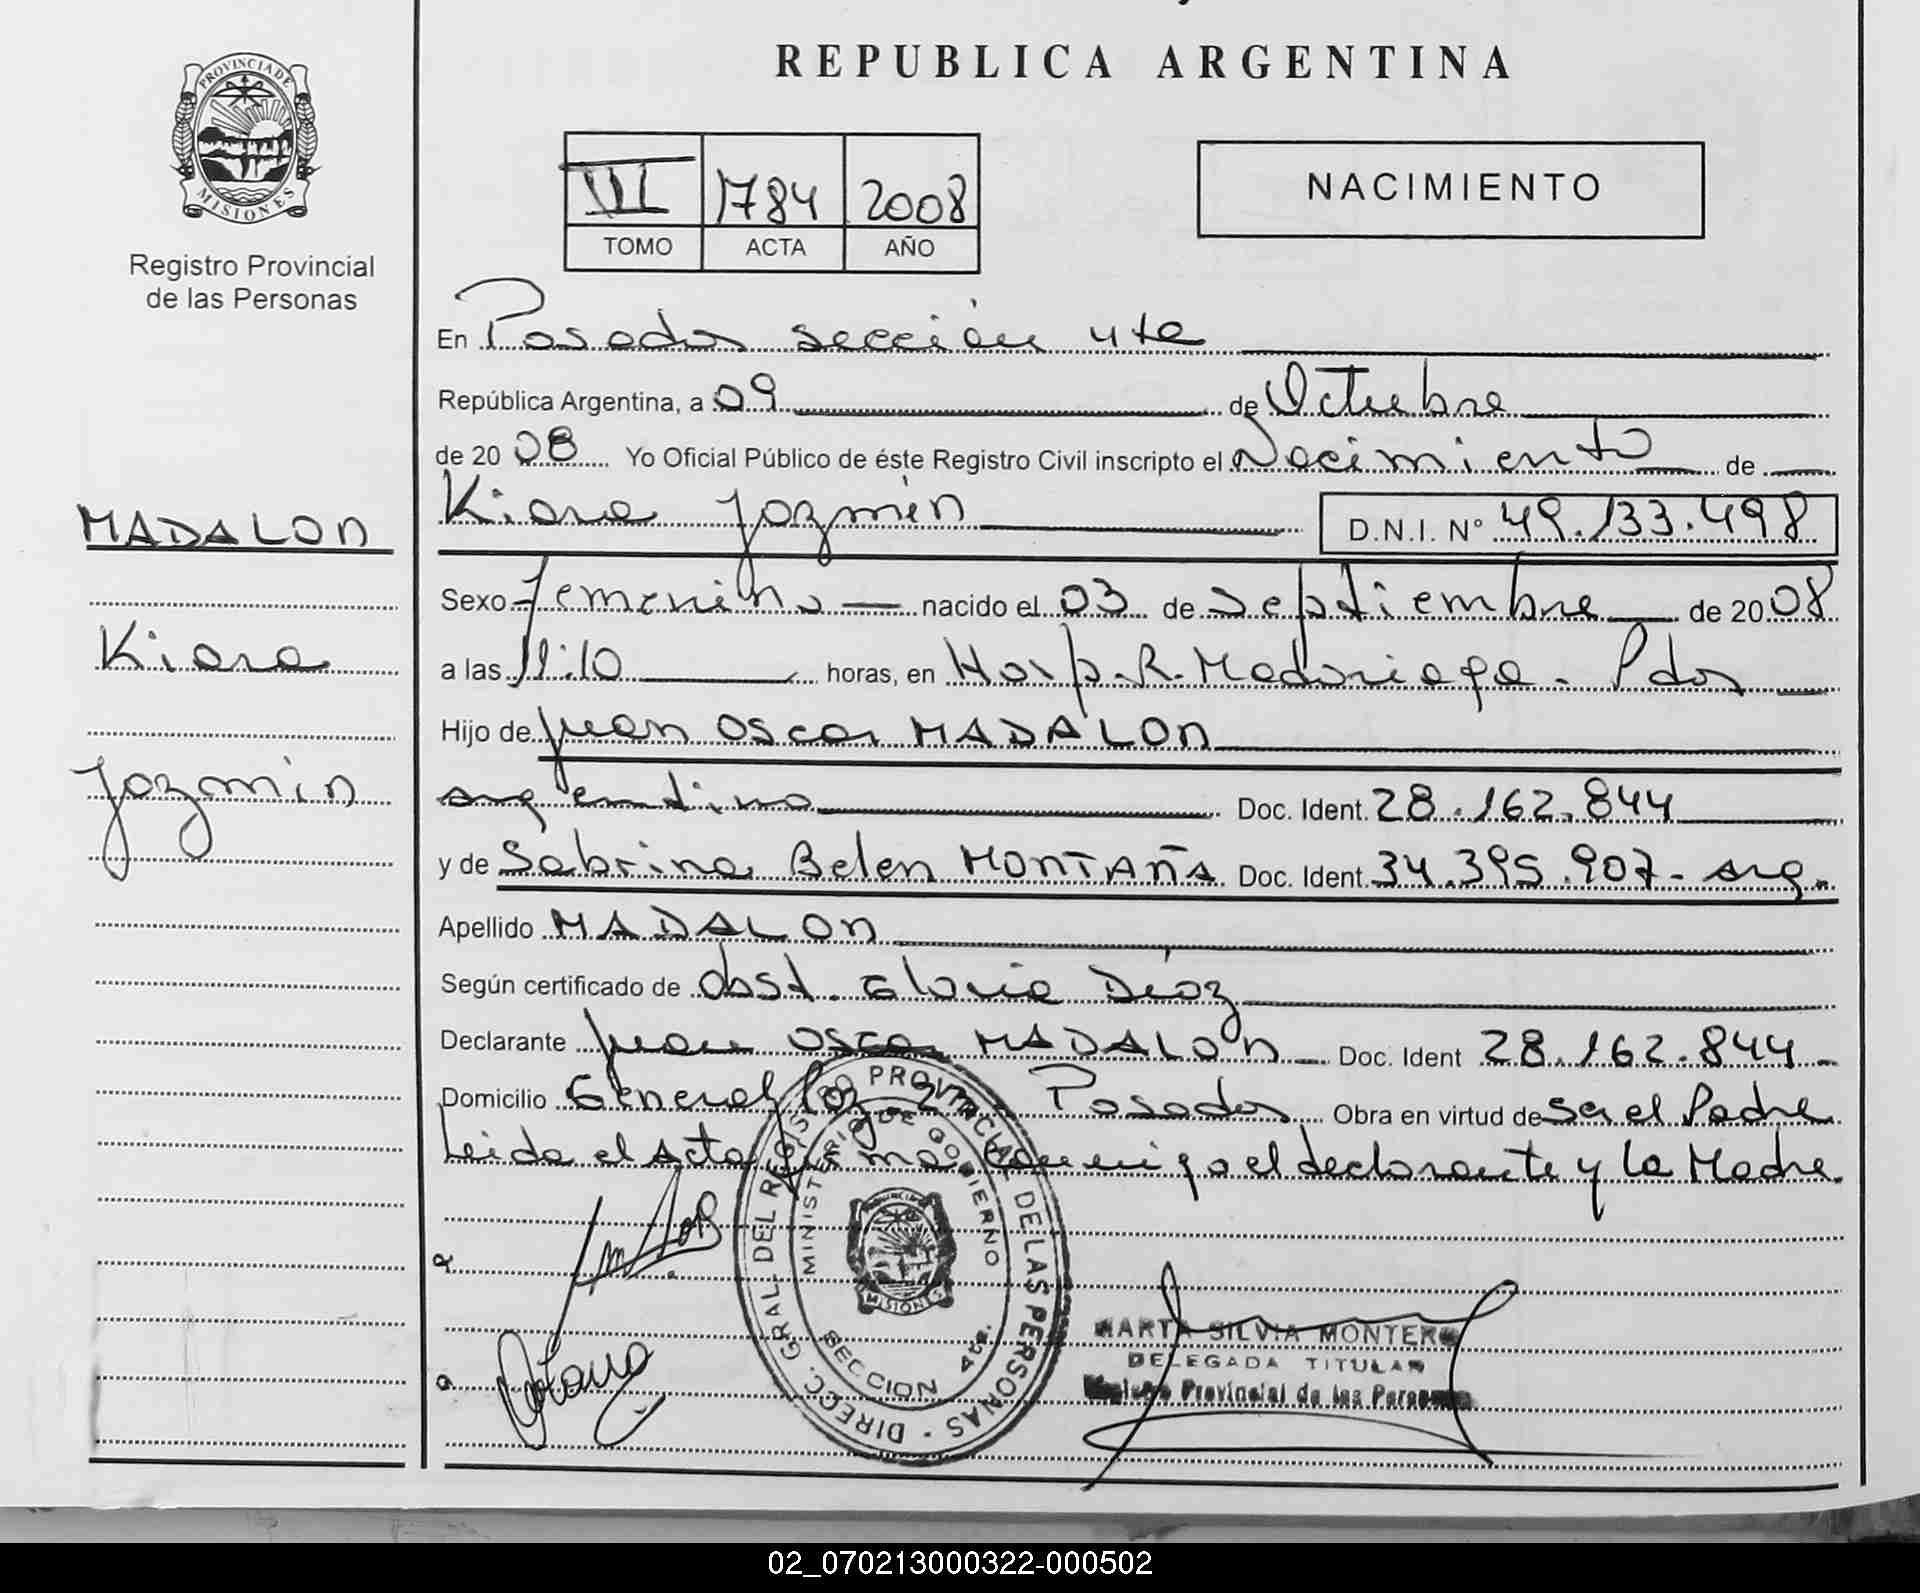 REPUBLICA ARGENTINA
PROVINCIA DE MISIONES
Registro Provincial
de las Personas
III 1784 2008
TOMO ACTA AÑO
NACIMIENTO
En Posadas sección 4ta
República Argentina, a 09 de Octubre
de 2008 Yo Oficial Público de éste Registro Civil inscripto el Nacimiento de
Kiara Jazmín D.N.I. Nº 49.133.498
MADALON
Kiara
Jazmin
Sexo Femenino nacido el 03 de Septiembre de 2008
a las 11:10 horas, en Hosp. R. Madariaga. Pdas
Hijo de Juan Oscar MADALON
argentino Doc. Ident. 28.162.844
y de Sabrina Belen MONTAÑA Doc. Ident. 34.395.907- arg.
Apellido MADALON
Según certificado de obst. Gloria Díaz
Declarante Juan Oscar MADALON Doc. Ident 28.162.844-
Domicilio General Paz Posadas Obra en virtud de ser el Padre
Leida el Acta firma conmigo el declarante y la Madre.
DIRECC. GRAL. DEL REGISTRO PROVINCIAL DE LAS PERSONAS
MINISTERIO DE GOBIERNO
MISIONES
SECCION 4ta.
MARTA SILVIA MONTERO
DELEGADA TITULAR
Registro Provincial de las Personas
02_070213000322-000502